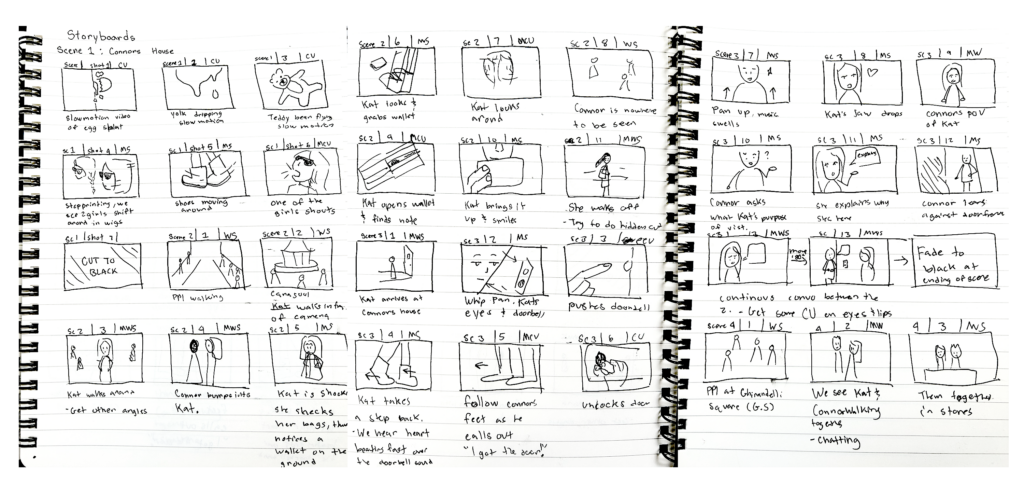 Storyboards
Scene 1: Connors House
Scene 1 shot 1 CU
Slowmotion video
of egg splat
scene 1 2 CU
yolk dripping
slow motion
scene 1 3 CU
Teddy bear flying
slow motion
sc 1 shot 4 MS
Stopprinting, we
see 2 girls shift
around in wigs
sc 1 shot 5 MS
shoes moving
around
sc 1 shot 6 MCU
one of the
girls shouts
sc 1 shot 7
CUT TO
BLACK
Scene 2 1 WS
PPl walking
Scene 2 2 WS
Carasoul
Kat walks in fron
of camera
Sc 2 3 MWS
Kat walks around
-Get other angles
Sc 2 4 MWS
Connor bumps into
Kat.
Sc 2 5 MS
Kat is shook
she checks
her bags, then
notices a
wallet on the
ground
Scene 2 6 MS
Kat looks &
grabs wallet
Sc 2 7 MCU
Kat looks
around
Sc 2 8 WS
Connor is nowhere
to be seen
Sc 2 9 MCU
Kat opens wallet
& finds note
Sc 2 10 MS
Kat brings it
up & smiles
Sc 2 11 MWS
She walks off
- Try to do hidden cut
Scene 3 1 WS
Kat arrives at
Connors house
Sc 3 2 MS
Whip Pan. Kats
eyes & doorbell
Sc 3 3 ECU
pushes doorbell
Sc 3 4 MS
Kat takes
a step back.
-We hear heart
beating fast over
the doorbell sound
Sc 3 5 MCU
follow connors
feet as he
calls out
"I got the door!"
Sc 3 6 CU
unlocks door
Scene 3 7 MS
Pan up. music
swells
Sc 3 8 MS
Kat's jaw drops
Sc 3 9 MW
connors pov
of Kat
Sc 3 10 MS
Connor asks
what Kat's purpose
of visit.
Sc 3 11 MS
explain
she explains why
she here
Sc 3 12 MS
connor leans
against doorframe
Sc 3 12 MWS
more
180°
Sc 3 13 MWS
Fade to
black at
ending of scene
continous convo between the
2. - Get some CU on eyes & lips
Scene 4 1 WS
PPl at Ghiradelli
Square (G.S)
4 2 MW
We see Kat &
Connor walking
together
- Chatting
4 3 MS
Them together
in stores